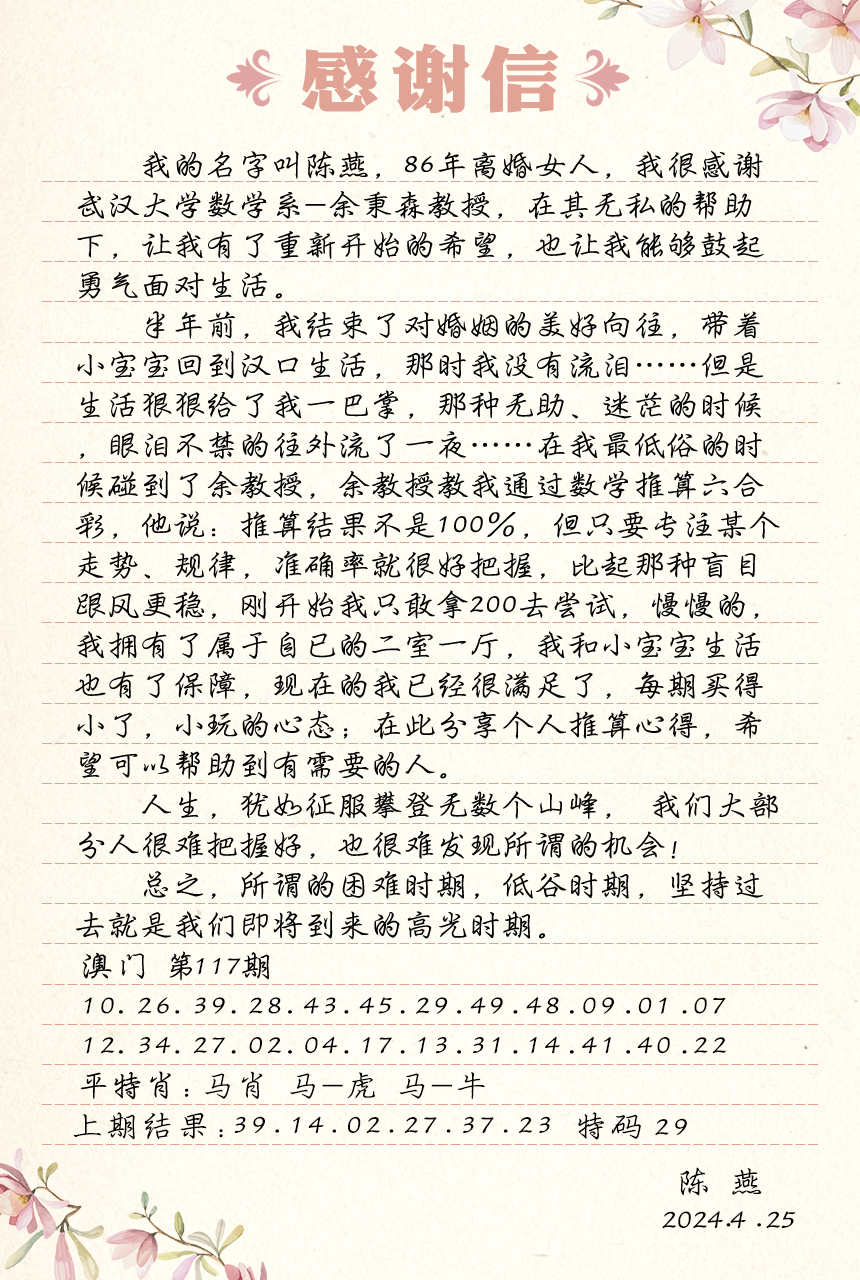 感谢信
我的名字叫陈燕，86年离婚女人，我很感谢
武汉大学数学系—余秉森教授，在其无私的帮助
下，让我有了重新开始的希望，也让我能够鼓起
勇气面对生活。
半年前，我结束了对婚姻的美好向往，带着
小宝宝回到汉口生活，那时我没有流泪……但是
生活狠狠给了我一巴掌，那种无助、迷茫的时候
，眼泪不禁的往外流了一夜……在我最低俗的时
候碰到了余教授，余教授教我通过数学推算六合
彩，他说：推算结果不是100%，但只要专注某个
走势、规律，准确率就很好把握，比起那种盲目
跟风更稳，刚开始我只敢拿200去尝试，慢慢的，
我拥有了属于自已的二室一厅，我和小宝宝生活
也有了保障，现在的我已经很满足了，每期买得
小了，小玩的心态；在此分享个人推算心得，希
望可以帮助到有需要的人。
人生，犹如征服攀登无数个山峰， 我们大部
分人很难把握好，也很难发现所谓的机会！
总之，所谓的困难时期，低谷时期，坚持过
去就是我们即将到来的高光时期。
澳门 第117期
10.26.39.28.43.45.29.49.48.09.01.07
12.34.27.02.04.17.13.31.14.41.40.22
平特肖：马肖 马—虎 马—牛
上期结果：39.14.02.27.37.23 特码 29
陈 燕
2024.4.25